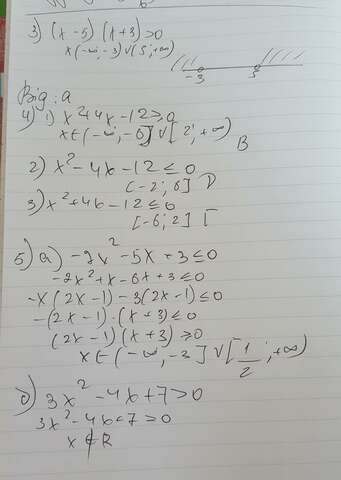 3) (x-5) (x+3)>0
x(-∞;-3)∨(5;+∞)
-3 5
Big: a
4) 1) x²+4x-12≥0
x∈(-∞;-6]∨[2;+∞)
B
2) x²-4x-12≤0
[-2;6] D
3) x²+4x-12≤0
[-6;2] Г
5) a) -2x²-5x+3≤0
-2x²+x-6x+3≤0
-x(2x-1)-3(2x-1)≤0
-(2x-1)·(x+3)≤0
(2x-1)(x+3)≥0
x∈(-∞;-3]∨[1/2;+∞)
δ) 3x²-4x+7>0
3x²-4x+7>0
x∉R